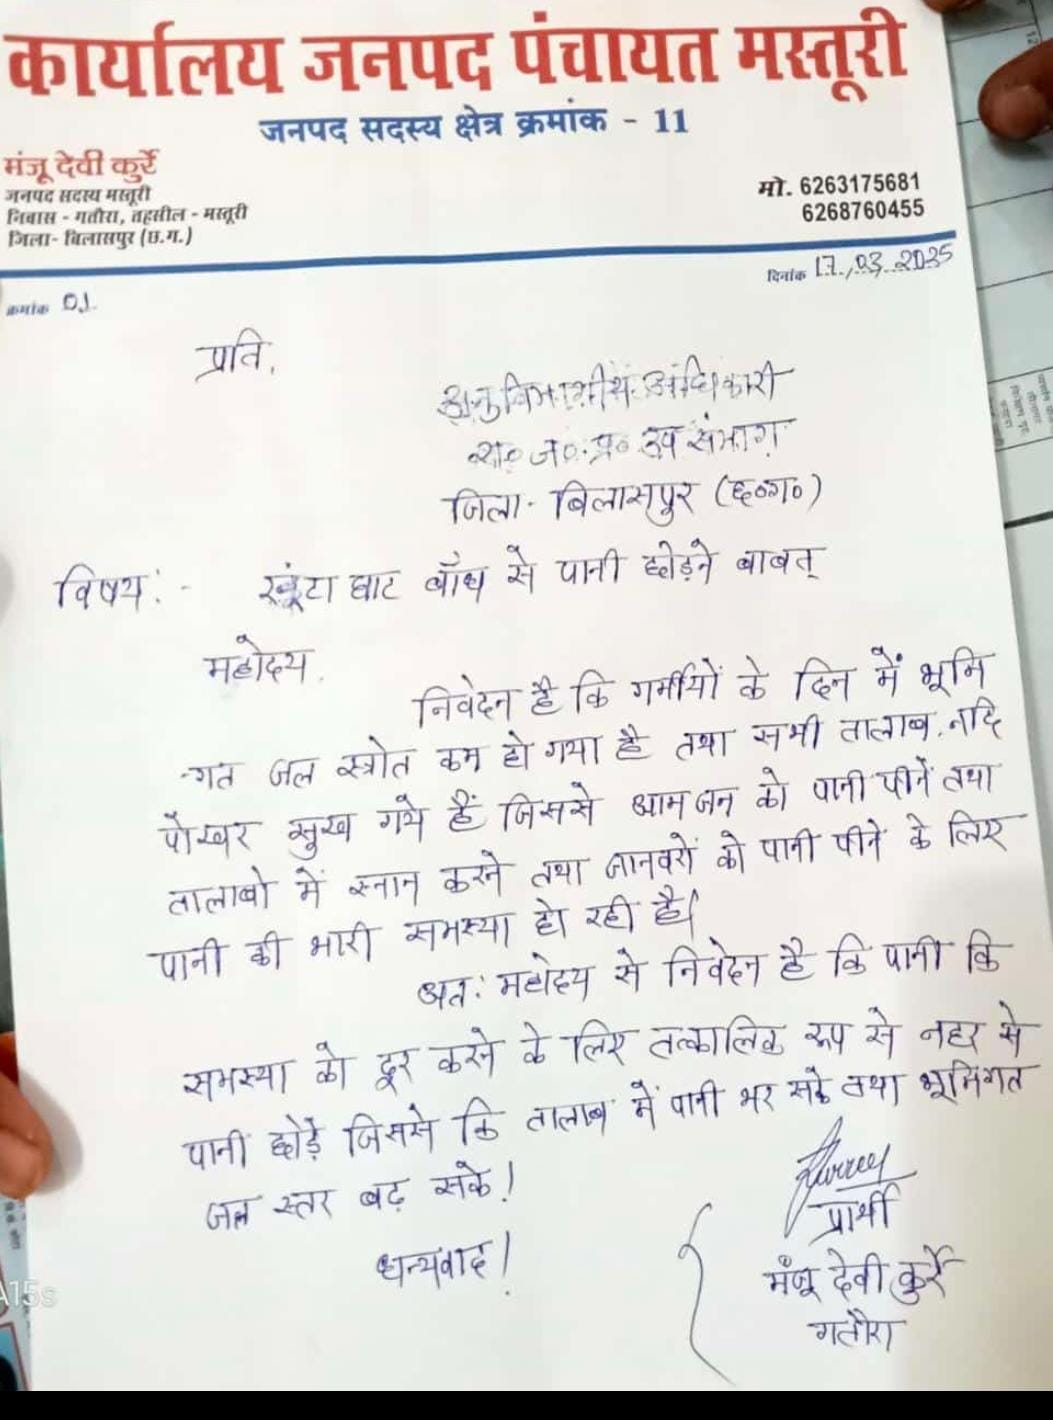 कार्यालय जनपद पंचायत मस्तूरी
जनपद सदस्य क्षेत्र क्रमांक - 11
मंजू देवी कुर्रे
जनपद सदस्य मस्तूरी
निवास - गतौरा, तहसील - मस्तूरी
जिला- बिलासपुर (छ.ग.)
मो. 6263175681
6268760455
क्रमांक 01.
दिनांक 17.,03.2025
प्रति,
अनुविभागीय अधिकारी
उप संभाग
जिला- बिलासपुर (छ०ग०)
विषय:- खूंटा घाट बाँध से पानी छोड़ने बाबत्
महोदय.
निवेदन है कि गर्मीयों के दिन में भूमि
-गत जल स्त्रोत कम हो गया है तथा सभी तालाब, नदि
पोखर सुख गये हैं जिससे आम जन को पानी पीनें तथा
तालाबो में स्नान करने तथा जानवरों को पानी पीने के लिए
पानी की भारी समस्या हो रही है।
अतः महोदय से निवेदन है कि पानी कि
समस्या को दूर करने के लिए तत्कालिक रूप से नहर से
पानी छोड़ें जिससे कि तालाब में पानी भर सके तथा भूमिगत
जल स्तर बढ़ सके!
धन्यवाद!
प्रार्थी
मंजू देवी कुर्रे
गतौरा
A15s